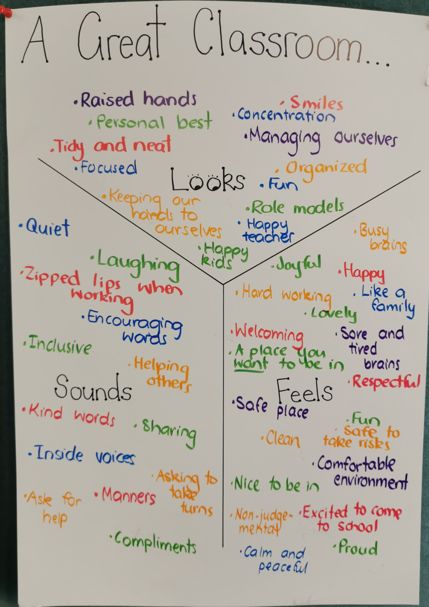 A Great Classroom...
•Raised hands
•Smiles
•Personal best
•Concentration
•Managing ourselves
•Tidy and neat
•Focused
Looks
•Organized
•Fun
•Keeping our
hands to
ourselves
•Role models
•Happy
teacher
•Happy
kids
•Quiet
•Laughing
•Zipped lips when
working
•Encouraging
words
•Inclusive
•Helping
others
Sounds
•Kind words
•Sharing
•Inside voices
•Asking to
take
turns
•Ask for
help
•Manners
•Compliments
•Busy
brains
•Joyful
•Happy
•Hard working
•Like a
family
•Lovely
•Welcoming
•Sore and
tired
brains
•A place you
want to be in
•Respectful
Feels
•Safe place
•Fun
•Clean
•Safe to
take risks
•Comfortable
environment
•Nice to be in
•Non-judge-
mental
•Excited to come
to school
•Calm and
peaceful
•Proud